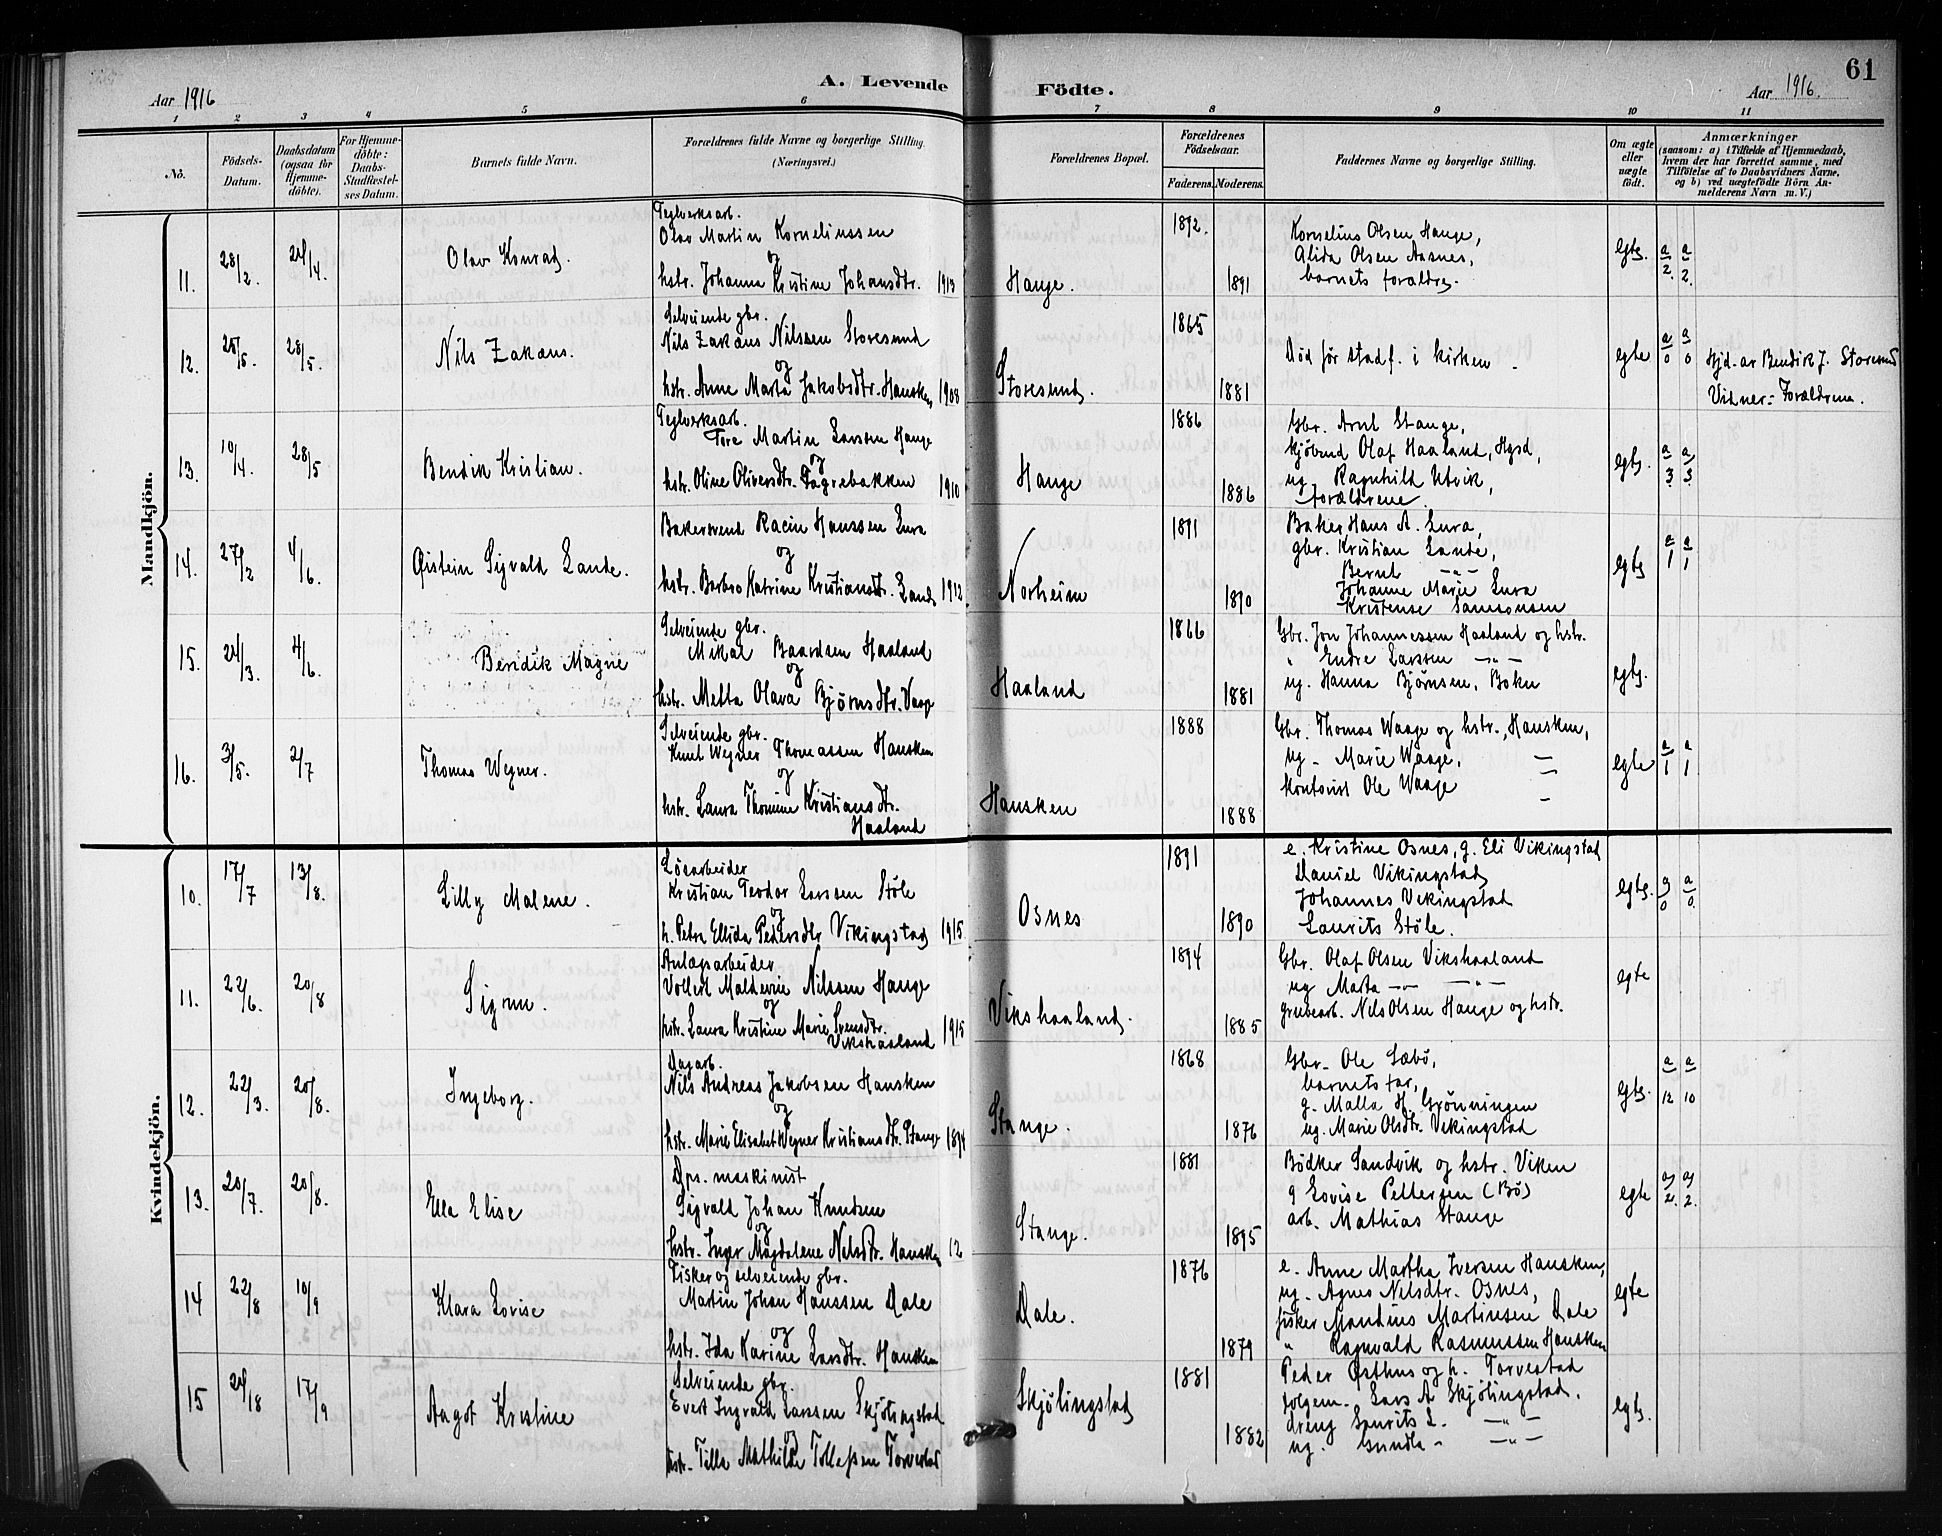 A. Levende Födte.
61
Aar 1916
Aar 1916.
1 2 3 4 5 6 7 8 9 10 11
Nō. Födsels-Datum. Daabsdatum (ogsaa for Hjemme-döbte). For Hjemme-döbte: Daabs-Stadfæstel-ses Datum. Barnets fulde Navn. Forældrenes fulde Navne og borgerlige Stilling. (Næringsvei.) Forældrenes Bopæl. Forældrenes Födselsaar. Faderens. Moderens. Faddernes Navne og borgerlige Stilling. Om ægte eller uægte födt. Anmærkninger (saasom: a) i Tilfælde af Hjemmedaab, hvem der har forrettet samme, med Tilföielse af to Daabsvidners Navne, og b) ved uægtefödte Börn An-melderens Navn m. V.)
Mandkjön.
11. 28/2. 24/4. Olav Konrad.
Teglverksarb.
Olav Martin Korneliussen
og
hstr. Johanna Kristine Johansdtr. 1913
Hauge. 1892. 1891
Kornelius Olsen Hauge,
Alida Olsen Aasnes,
barnets forældre.
egte. a/2. a/2.
12. 28/5. Nils Zakæus.
Selveiende gbr.
Nils Zakæus Nilssen Storesund
og
hstr. Anne Marta Jakobsdtr. Hausken 1908
Storesund. 1865 1881
Død før stadf. i kirken.
egte a/0 a/0
Hjd. av Bendik J. Storesund
Vidner: Forældrene.
13. 10/4. 28/5 Bendik Kristian.
Teglverksarb.
Tore Martin Larssen Hauge
og
hstr. Oline Oliversdtr. Fagrebakken 1910
Hauge 1886 1886
Gbr. Arnt Stange,
kjøbmd Olaf Haaland, Hgsd,
ug Ragnhild Utvik,
forældrene
egte. a/3. a/3.
14. 27/2 4/6. Øistein Sigvald Lande.
Bakersvend Racin Hanssen Lura
og
hstr. Barbro Katrine Kristiansdtr. Lande 1912
Norheim 1891 1890
Baker Hans A. Lura,
gbr. Kristian Lande,
Bernt –"–
Johanne Marie Lura
Kristense Samsonsen
egte a/1 a/1
15. 24/3. 4/6. Bendik Magne
Selveiende gbr.
Mikal Baardsen Haaland
og
hstr. Metta Olava Bjørnsdtr. Vaage
Haaland 1866 1881
Gbr. Jon Johannessen Haaland og hstr.
" Endre Larssen –"–
ug. Hanna Bjørnsen, Bokn
egte.
16. 3/5. 2/7 Thomas Wegner.
Selveiende gbr.
Knut Wegner Thomassen Hausken
og
hstr. Laura Thomine Kristiansdtr.
Haaland
Hausken 1888 1888
Gbr. Thomas Waage og hstr., Hausken,
ug – Marie Waage, –
kontorist Ole Waage –
egte a/1 a/1
Kvindekjön.
10. 17/7 13/8. Lilly Malene.
Løsarbeider
Kristian Teodor Larssen Støle
og
h. Petra Ellida Pedersdtr Vikingstad 1915
Osnes 1891 1890
e. Kristine Osnes, g. Eli Vikingstad
Daniel Vikingstad
Johannes Vikingstad
Laurits Støle.
egte. a/0 a/0.
11. 22/6. 20/8 Sigrun.
Anlægsarbeider.
Nilssen Hauge
og
hstr. Laura Kristine Marie Svensdtr.
Vikshaaland 1915
Vikshaaland. 1894 1885
Gbr. Olaf Olsen Vikshaaland
ug Marta –"– –"–
grubearb. Nils Olsen Hauge og hstr.
egte
12. 22/3. 20/8. Ingeborg.
Dagarb.
Nils Andreas Jakobsen Hausken
og
hstr. Marie Elisabet Wegner Kristiansdtr. Stange 1894
Stange. 1868 1876
Gbr. Ole Sæbø,
barnets far,
g. Malla H. Grønningen
ug. Marie Olsdtr. Vikingstad
egte. a/12 a/10
13. 20/7. 20/8. Ella Elise
Dps. maskinist
Sigvald Johan Knudsen
og
hstr. Inger Magdalene Nilsdtr. Hausken 12
Stange. 1881 1895
Bødker Sandvik og hstr. Viken
g Lovise Pettersen (Bø)
arb. Mathias Stange
egte a/2. a/2.
14 22/8 10/9 Klara Lovise
Fisker og selveiende gbr.
Martin Johan Hanssen Dale
og
hstr. Ida Karine Larsdtr. Hausken
Dale. 1876 1879
e. Anne Martha Iversen Hausken,
ug. Agnes Nilsdtr. Osnes,
fisker Mandius Martinsen Dale
" Ragnvald Rasmussen Hausken
egte
15 17/9 Aagot Kristine
Selveiende gbr.
Evert Ingvald Larssen Skjølingstad
og
hstr. Tilla Mathilde Tollefsen Torvestad
Skjølingstad 1881 1882
Peder Østhus og h. Torvestad
folgem. Lars A Skjølingstad.
dreng Laurits L. –"–
ug. Gunda – –"–
egte.